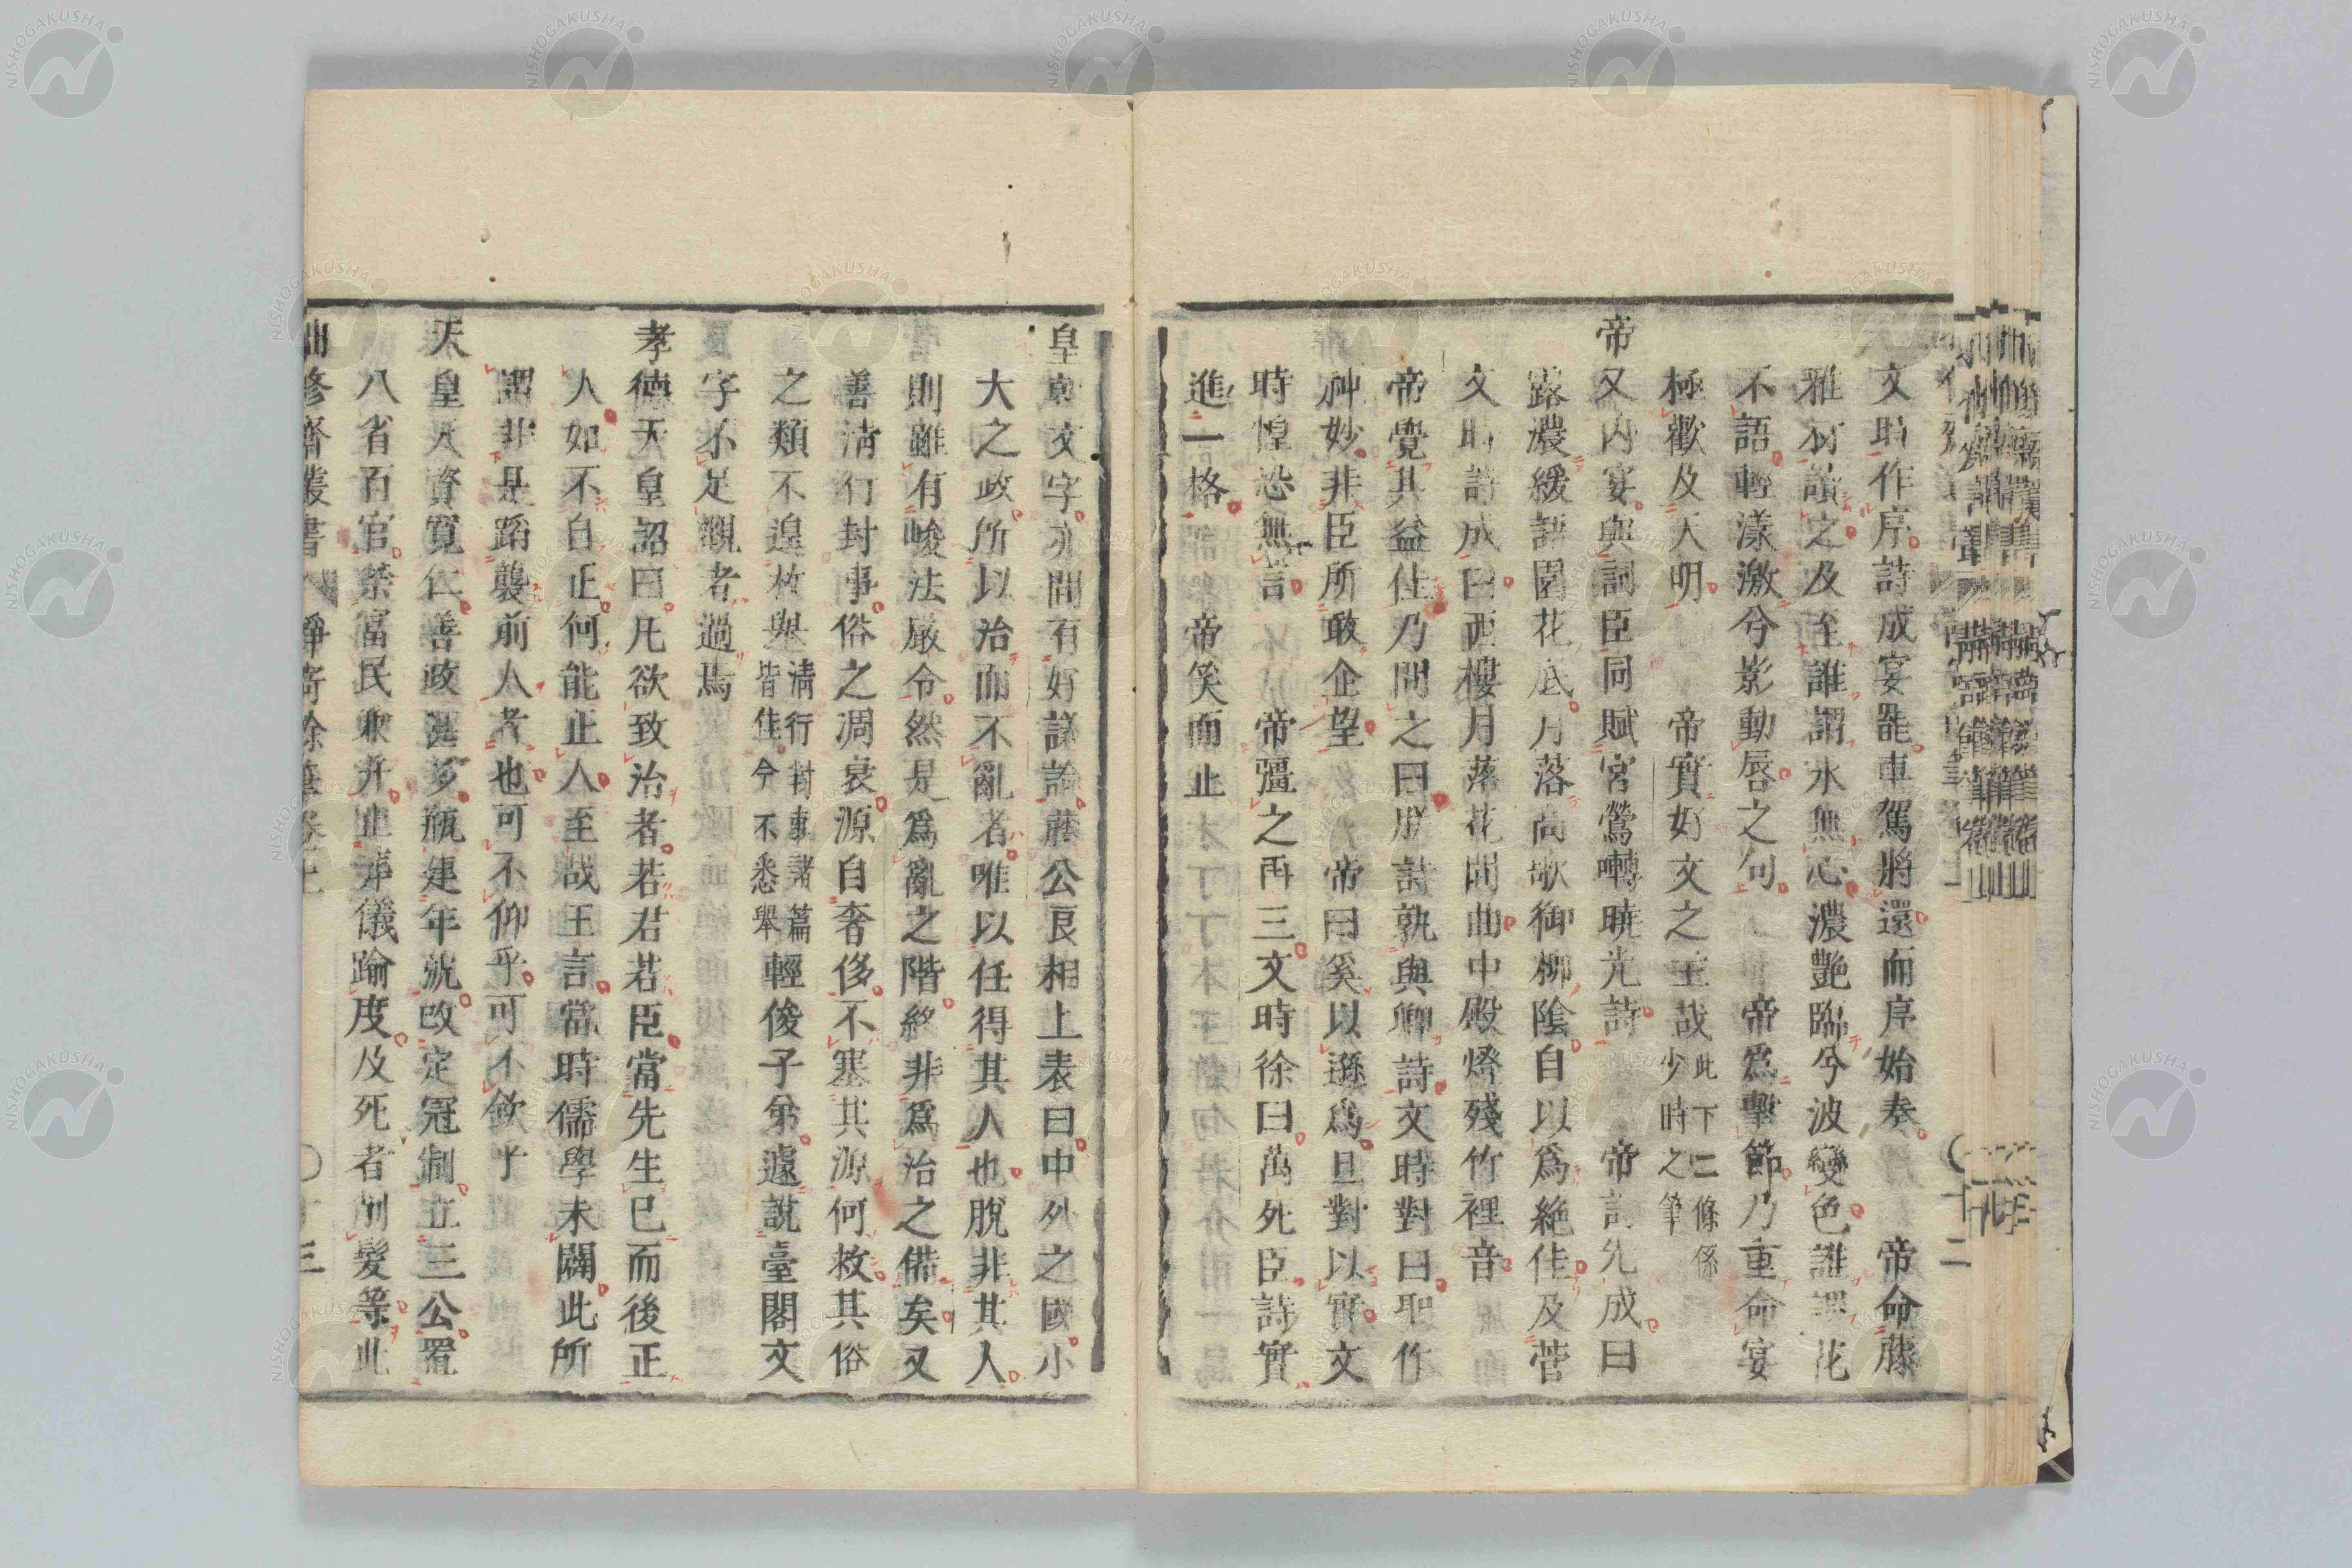 文時作序詩成宴罷車駕將還而序始奏 帝命藤
雅材讀之及至誰謂水無心濃艷臨兮波變色誰謂花
不語輕漾激兮影動唇之句 帝爲擊節乃重命宴
極歡及天明 帝實好文之主哉此下二條係
少時之筆
帝又內宴與詞臣同賦宮鶯囀曉光詩 帝詩先成曰
露濃緩語園花底月落高歌御柳陰自以爲絶佳及菅
文時詩成曰西樓月落花間曲中殿燈殘竹裡音
帝覺其益佳乃問之曰朕詩孰與卿詩文時對曰聖作
神妙非臣所敢企望 帝曰奚以遜爲且對以實文
時惶恐無言 帝彊之再三文時徐曰萬死臣詩實
進一格 帝笑而止
皇朝文字亦間有好議論藤公良相上表曰中外之國小
大之政所以治而不亂者唯以任得其人也脫非其人
則雖有峻法嚴令然是爲亂之階終非爲治之備矣又
善清行封事俗之凋衰源自奢侈不塞其源何救其俗
之類不遑枚舉清行封事諸篇
皆佳今不悉舉輕俊子弟遽說臺閣文
字不足觀者過焉
孝德天皇詔曰凡欲致治者若君若臣當先生已而後正
人如不自正何能正人至哉王言當時儒學未闢此所
謂非是蹈襲前人者也可不仰乎可不欽乎
天皇天資寬仁善政甚多瓶建年號改定冠制立三公置
八省百官禁富民兼并止葬儀踰度及死者刖髮等此
修齊叢書 靜寄餘筆卷上 十三
十二
NISHOGAKUSHA